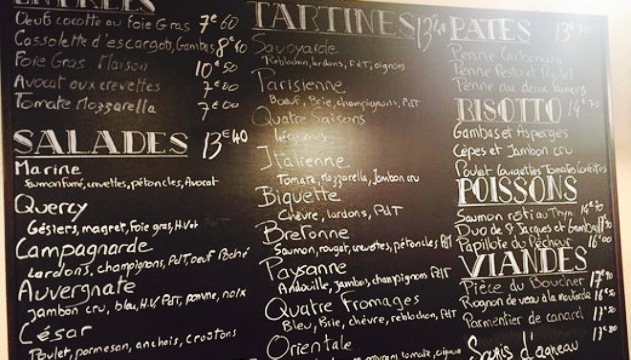 ENTRÉES
Oeufs cocotte au Foie Gras 7€60
Cassolette d'escargots, Gambas 8€90
Foie Gras Maison 10€50
Avocat aux crevettes 7€00
Tomate Mozzarella 7€00
SALADES 13€40
Marine
Saumon fumé, crevettes, pétoncles, Avocat
Quercy
Gésiers, magret, Foie gras, H.Vert
Campagnarde
Lardons, champignons, PdT, oeuf Poché
Auvergnate
Jambon cru, bleu, H.V, PdT, pomme, noix
César
Poulet, parmesan, anchois, croûtons
TARTINES 13€40
Savoyarde
Reblochon, lardons, PdT, oignons
Parisienne
Boeuf, Brie, champignons, PdT
Quatre Saisons
légumes
Italienne
Tomate, mozzarella, Jambon cru
Biquette
Chèvre, lardons, PdT
Bretonne
Saumon, rouget, crevettes, pétoncles, PdT
Paysanne
Andouille, jambon, champignons PdT
Quatre Fromages
Bleu, Brie, chèvre, reblochon, PdT
Orientale
tomate, oignon
PATES
Penne Carbonara
Penne Pesto et Poulet
Penne aux deux Saumons
RISOTTO
Gambas et Asperges
Cèpes et Jambon cru
Poulet Courgettes Tomates Confites
POISSONS
Saumon rôti au Thym
Duo de St Jacques et Gambas
Papillote du Pêcheur 16€00
VIANDES
Pièce du Boucher
Rognon de veau à la moutarde
Parmentier de canard
Souris d'agneau